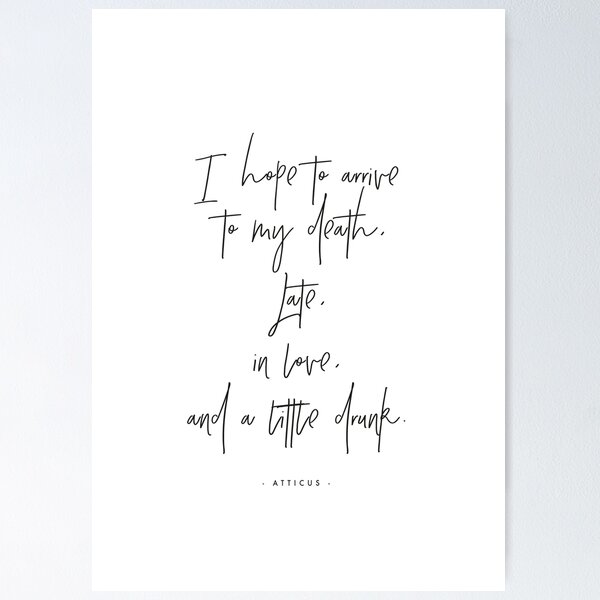 I hope to arrive
to my death,
Late,
in love,
and a little drunk.
- ATTICUS -